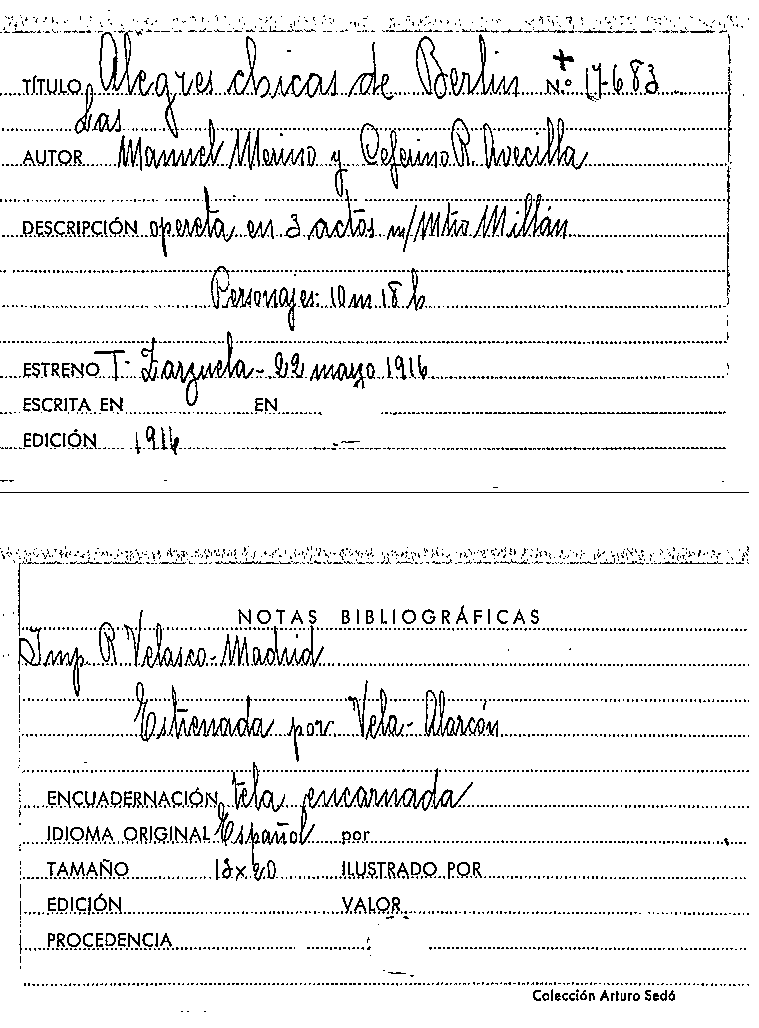 TÍTULO Alegres chicas de Berlin Nº 17683
Las
AUTOR Manuel Merino y Ceferino R. Avecilla
DESCRIPCIÓN opereta en 3 actos m/Mtro Millán
Personajes: 10 m 18 h
ESTRENO T. Zarzuela - 22 mayo 1916
ESCRITA EN EN
EDICIÓN 1916
NOTAS BIBLIOGRÁFICAS
Imp R Velasco - Madrid
Estrenada por: Vela - Alarcón
ENCUADERNACIÓN tela encarnada
IDIOMA ORIGINAL Español por
TAMAÑO 13x20 ILUSTRADO POR
EDICIÓN VALOR
PROCEDENCIA
Colección Arturo Sedó